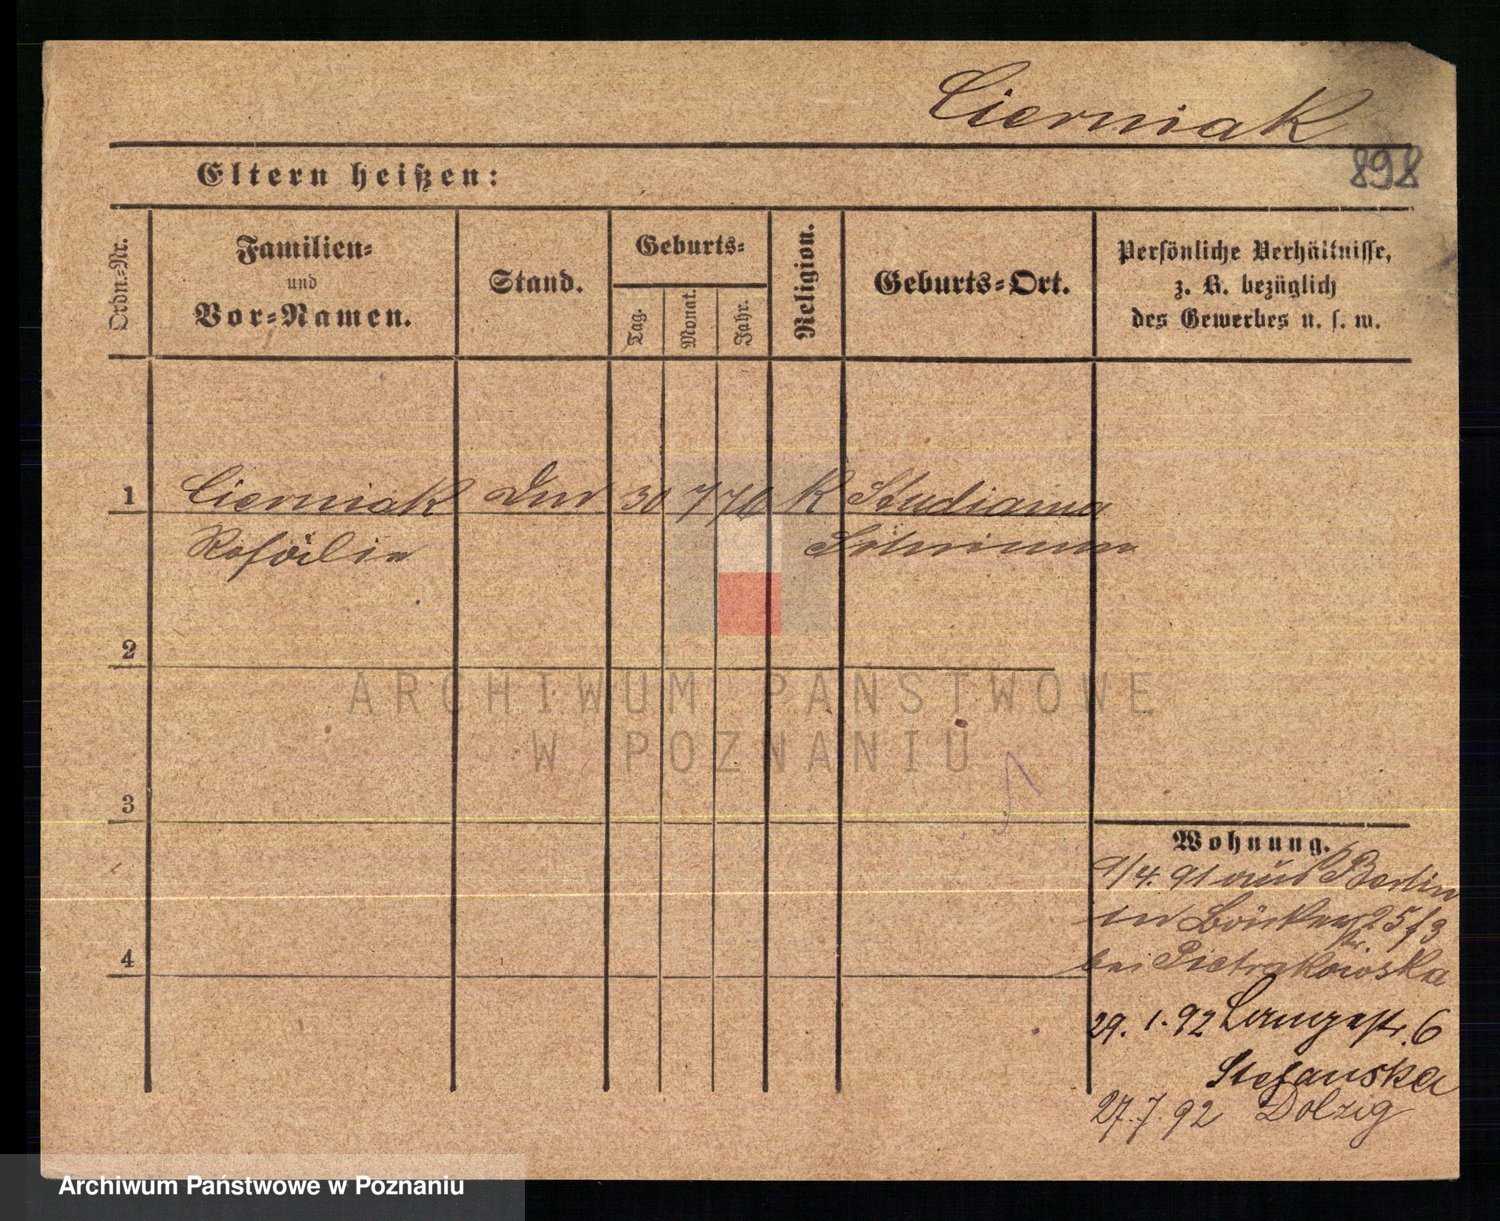 Cierniak
898
Eltern heißen:
Ordn.-Nr.
Familien-
und
Vor-Namen.
Stand.
Geburts-
Tag.
Monat.
Jahr.
Religion.
Geburts-Ort.
Persönliche Verhältnisse,
z. B. bezüglich
des Gewerbes u. s. w.
1 Cierniak 30 7 70 K Studianna
Rosalie
2
ARCHIWUM PAŃSTWOWE
W POZNANIU
3
Wohnung.
9/4. 91 aus Berlin
25/3
4 bei Pietrakowska
29. 1. 92 Langestr. 6
Stefanska
27.7.92 Dolzig
Archiwum Państwowe w Poznaniu